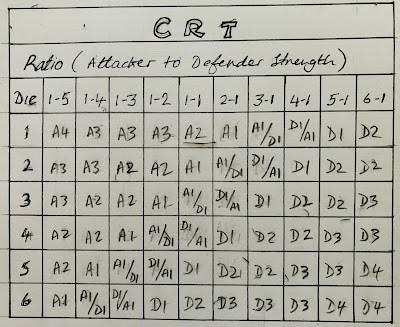 CRT
Ratio (Attacker to Defender Strength)
Die 1-5 1-4 1-3 1-2 1-1 2-1 3-1 4-1 5-1 6-1
1 A4 A3 A3 A3 A2 A1 A1/D1 D1/A1 D1 D2
2 A3 A3 A2 A2 A1 A1/D1 D1/A1 D1 D2 D2
3 A3 A2 A2 A1 A1/D1 D1/A1 D1 D2 D2 D3
4 A2 A2 A1 A1/D1 D1/A1 D1 D2 D2 D3 D3
5 A2 A1 A1/D1 D1/A1 D1 D2 D2 D3 D3 D4
6 A1 A1/D1 D1/A1 D1 D2 D3 D3 D3 D4 D4